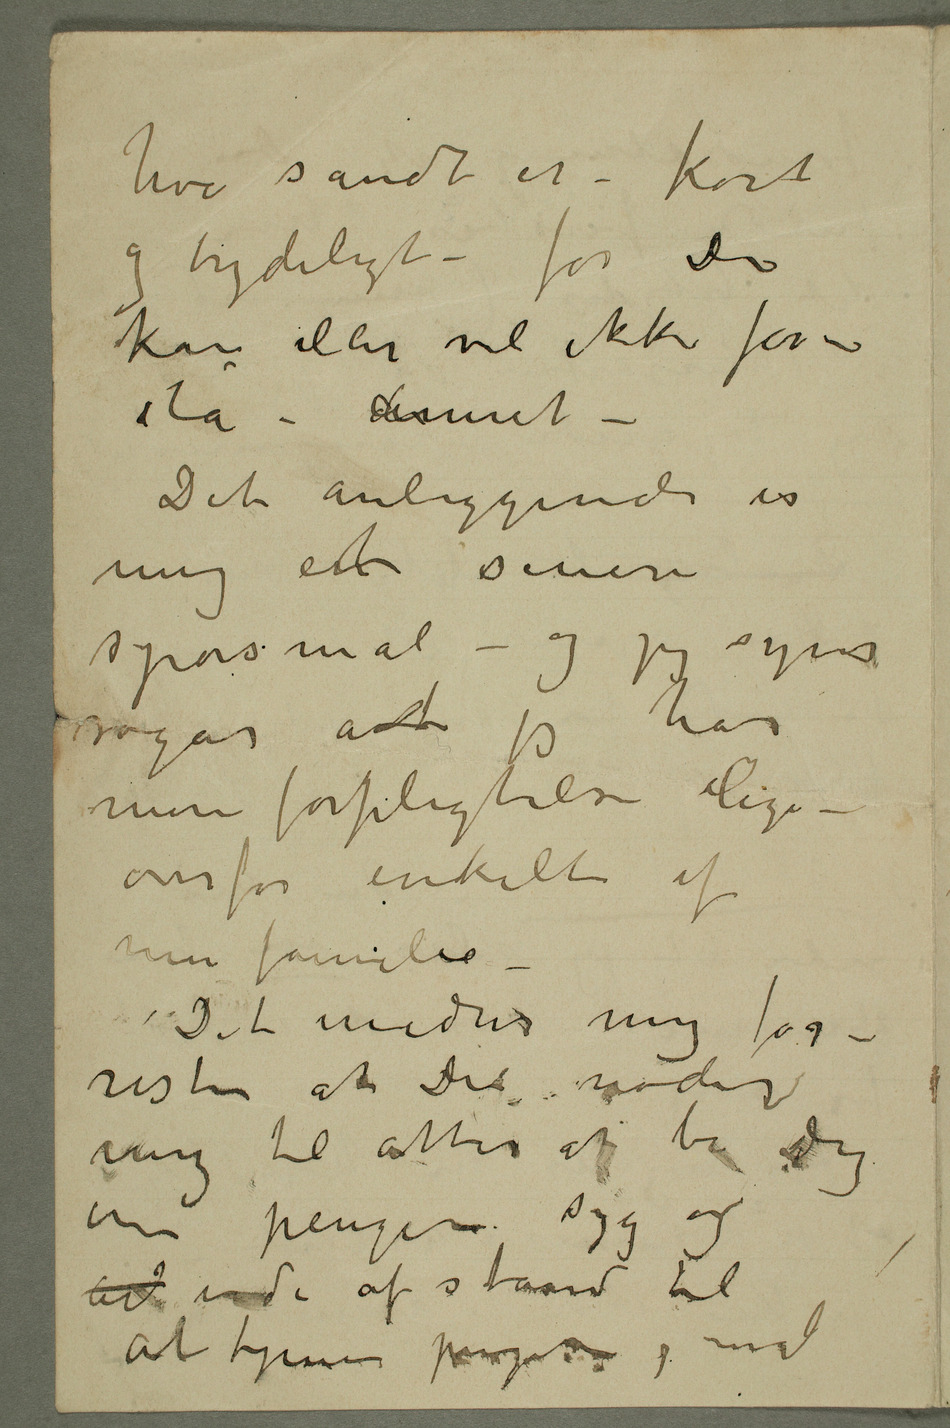 hva sandt er – kort
og tydeligt – for De
kan eller vil ikke for–
stå – annet –
Det anliggende er
mig et senere
spørsmål – og jeg synes
sogar at jeg har
mere forpligtelse lige–
overfor enkelte af
min familie –
Det nedrer mig for–
resten at De nøder
mig til atter at be Dig
om penger. Syg og
ude af stand til
at tjene penger, mål